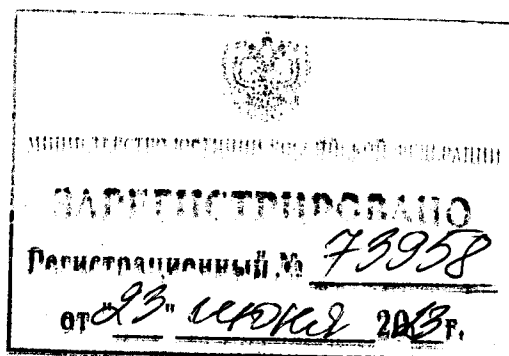 МИНИСТЕРСТВО ЮСТИЦИИ РОССИЙСКОЙ ФЕДЕРАЦИИ
ЗАРЕГИСТРИРОВАНО
Регистрационный № 73958
от "23" июня 2023г.